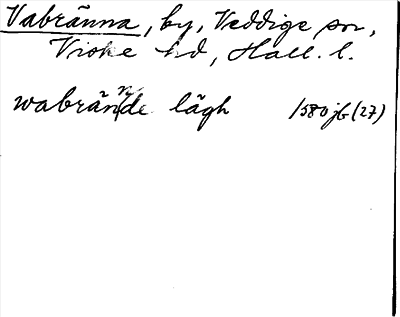 Vabränna, by, Veddige sn,
Viske hd, Hall. l.
wabrände lägh 1580 jb (27)